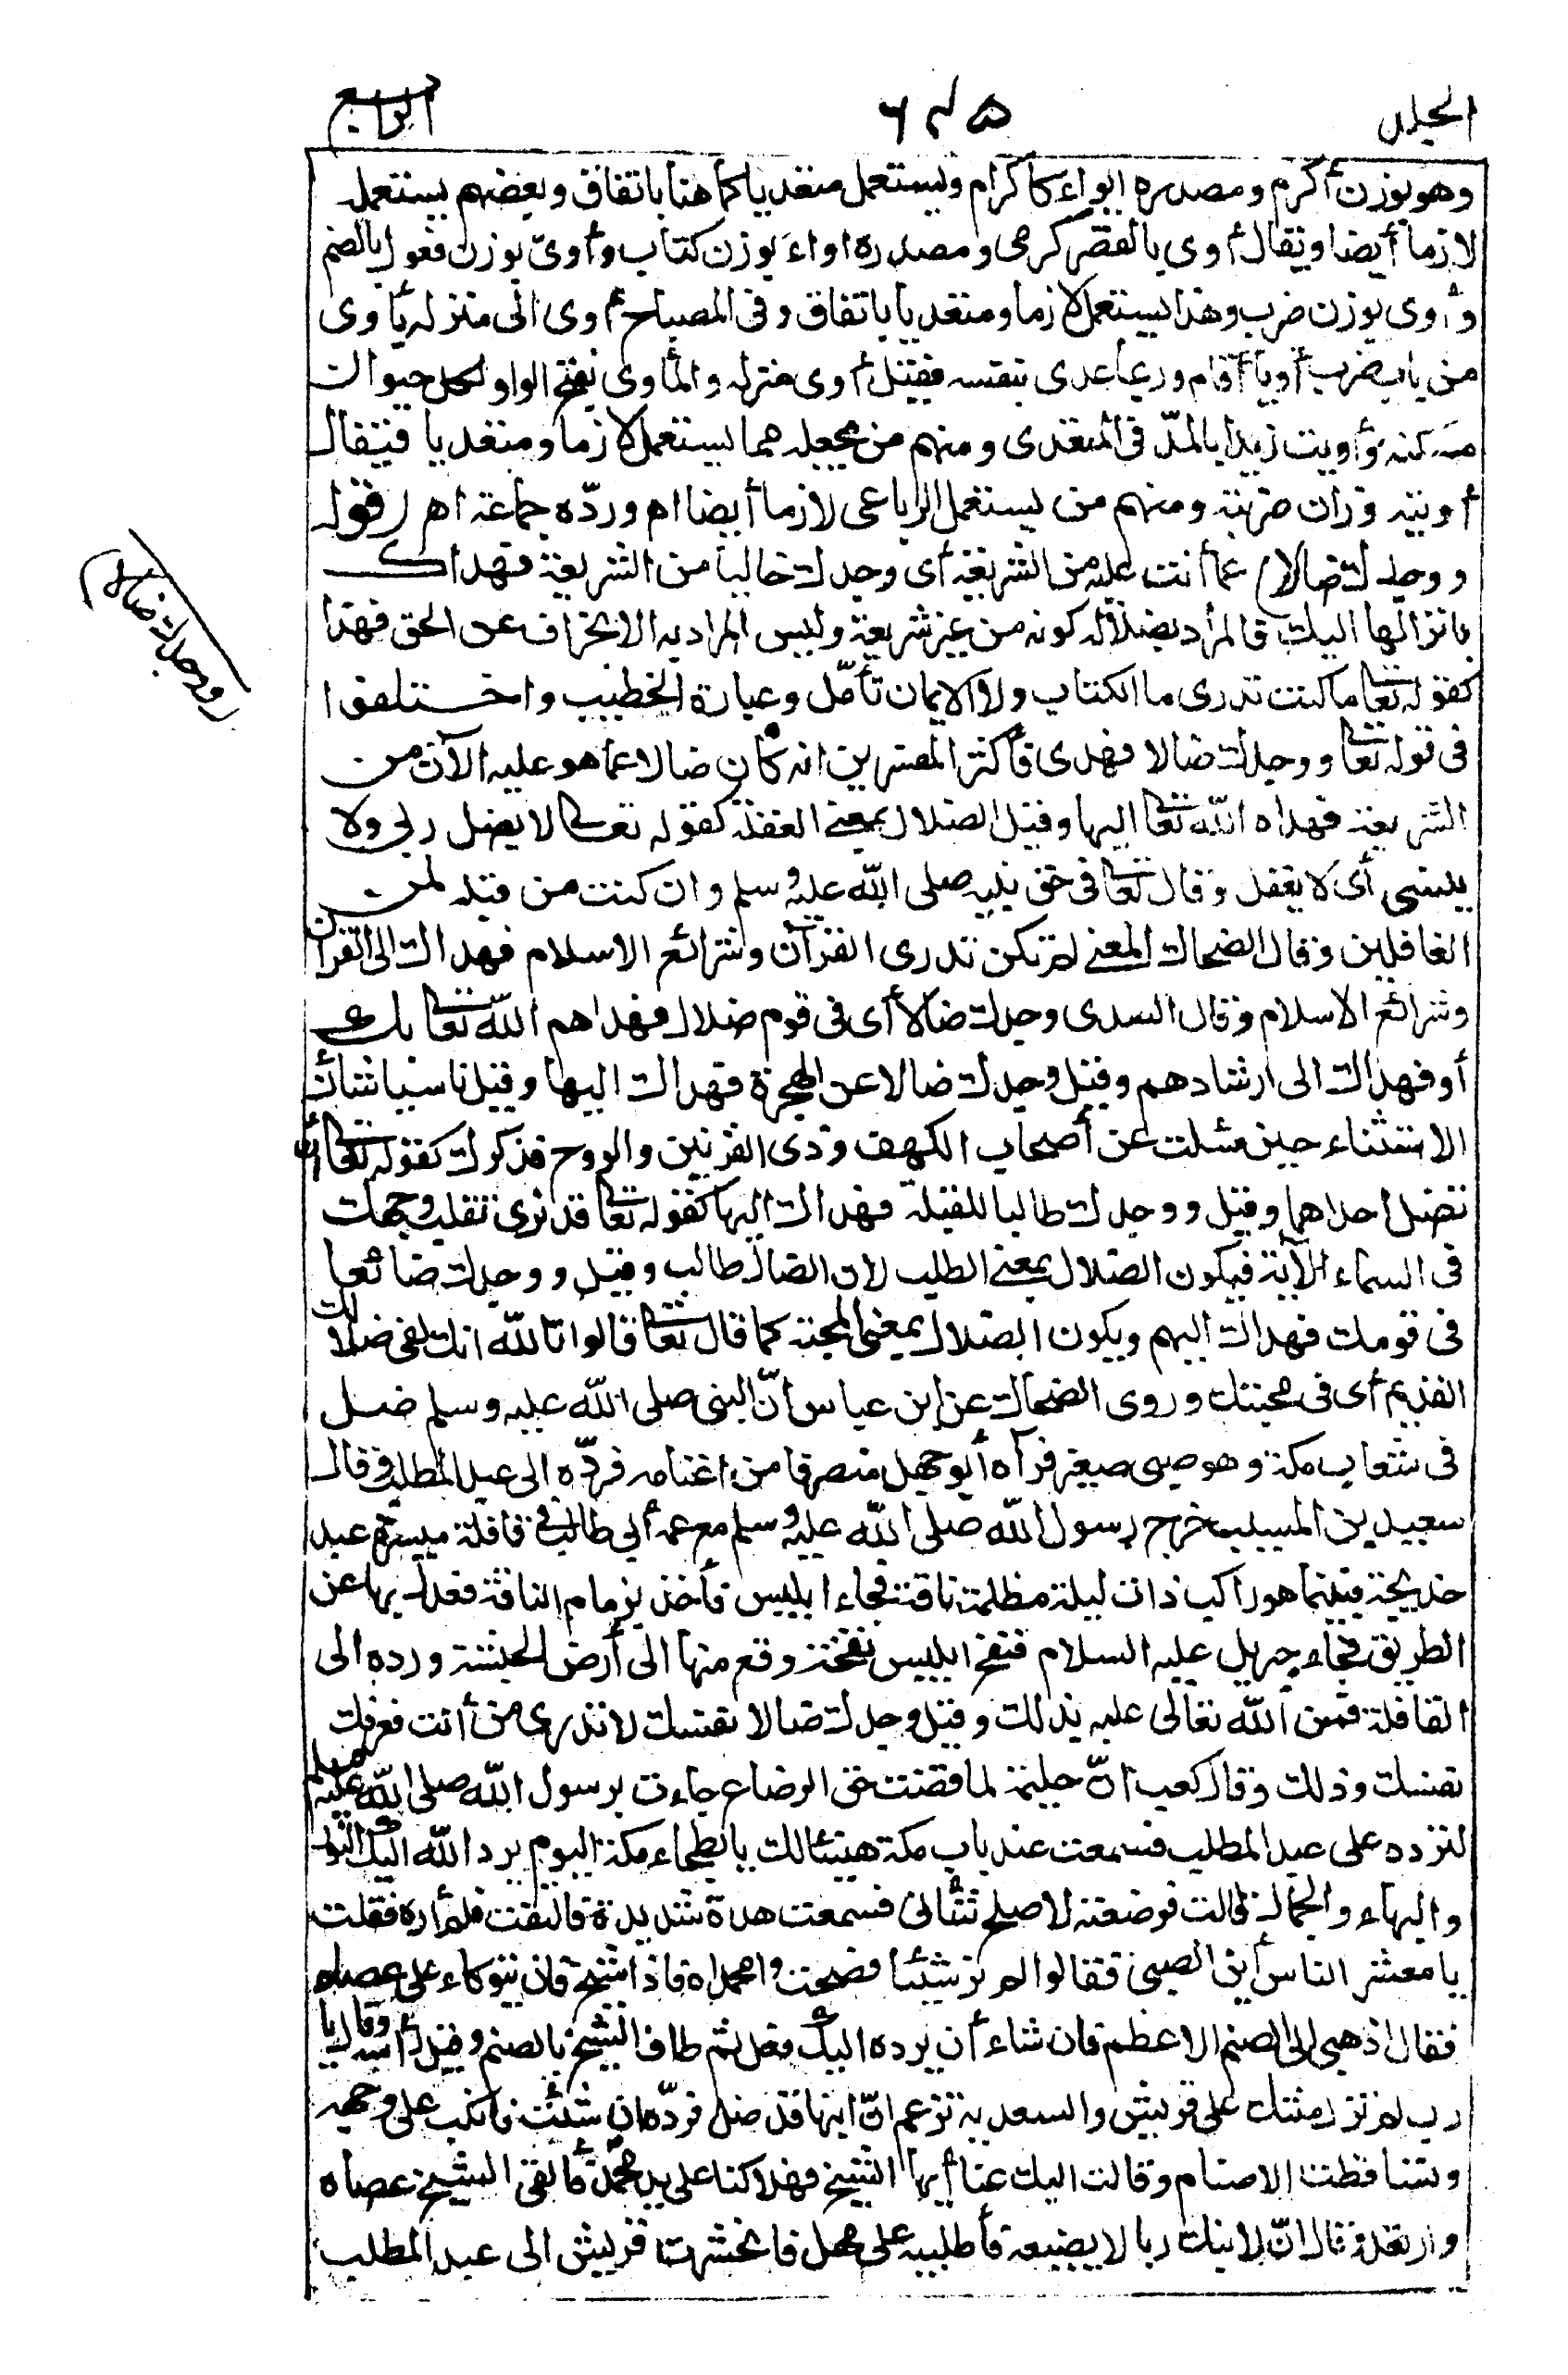 الجلد
۶۴۵
الرابع
وهو بوزن أكرم ومصدره ايواء كاكرام ويستعمل متعديا كما هنا باتفاق وبعضهم يستعمل
لازما أيضا ويقال أوى بالقصر كرمى ومصدره اواء بوزن كتاب وأوىّ بوزن فعول بالضم
وأوى بوزن ضرب وهذا يستعمل لازما ومتعديا باتفاق وفى المصباح أوى الى منزله يأوى
من باب ضرب أويا أقام وربما عدى بنفسه فقيل أوى منزله والمأوى بفتح الواو لكل حيوان
مسكنه وأويت زيدا بالمدّ فى المتعدى ومنهم من يجعله مما يستعمل لازما ومتعديا فيقال
أويته وزان ضربته ومنهم من يستعمل الرباعى لازما أيضا اه وردّه جماعة اه (قوله
ووجدك ضالا) عما أنت عليه من الشريعة أى وجدك خاليا من الشريعة فهداك
بانزالها اليك فالمراد بضلاله كونه من غير شريعة وليس المراد به الانحراف عن الحق فهذا
كقوله تعا ما كنت تدرى ما الكتاب ولا الايمان تأمّل وعبارة الخطيب واختلفوا
فى قوله تعا ووجدك ضالا فهدى فأكثر المفسرين انه كان ضالا عما هو عليه الآن من
الشريعة فهداه اللّه تعا اليها وقيل الضلال بمعنى الغفلة كقوله تعا لا يضل ربى ولا
ينسى أى لا يغفل وقال تعا فى حق نبيه صلى اللّه عليه وسلم وان كنت من قبله لمن
الغافلين وقال الضحاك المعنى لم تكن تدرى القرآن وشرائع الاسلام فهداك الى القرآن
وشرائع الاسلام وقال السدى وجدك ضالا أى فى قوم ضلال فهداهم اللّه تعا بك
أو فهداك الى ارشادهم وقيل وجدك ضالا عن الهجرة فهداك اليها وقيل ناسيا شأن
الاستثناء حين سئلت عن أصحاب الكهف وذى القرنين والروح فذكرك كقوله تعا أن
تضل احداهما وقيل ووجدك طالبا للقبلة فهداك اليها كقوله تعا قد نرى تقلب وجهك
فى السماء الآية فيكون الضلال بمعنى الطلب لان الضال طالب وقيل ووجدك ضائعا
فى قومك فهداك اليهم ويكون الضلال بمعنى المحبة كما قال تعا قالوا تاللّه انك لفى ضلالك
القديم أى فى محبتك وروى الضحاك عن ابن عباس أنّ النبى صلى اللّه عليه وسلم ضل
فى شعاب مكة وهو صبى صغير فرآه أبو جهل منصرفا من اغنامه فردّه الى عبد المطلب وقال
سعيد بن المسيب خرج رسول اللّه صلى اللّه عليه وسلم مع عمه أبى طالب فى قافلة ميسرة عبد
خديجة فبينما هو راكب ذات ليلة مظلمة ناقة فجاء ابليس فأخذ بزمام الناقة فعدل بها عن
الطريق فجاء جبريل عليه السلام فنفخ ابليس نفخة وقع منها الى أرض الحبشة ورده الى
القافلة فمن اللّه تعالى عليه بذلك وقيل وجدك ضالا نفسك لا تدرى من أنت فعرفك
نفسك وذلك وقال كعب انّ حليمة لما قضت حق الرضاع جاءت برسول اللّه صلى اللّه عليه وسلم
لترده على عبد المطلب فسمعت عند باب مكة هنيئا لك يا بطحاء مكة اليوم يرد اللّه اليك النور
والبهاء والجمال قالت فوضعته لاصلح ثيابى فسمعت هدة شديدة فالتفت فلم أره فقلت
يا معشر الناس أين الصبى فقالوا لم نر شيئا فصحت وامحمداه فاذا شيخ فان يتوكاء على عصاه
فقال اذهبى الى الصنم الاعظم فان شاء أن يرده اليك فعل ثم طاف الشيخ بالصنم وقبل رأسه وقال يا
رب لم تزل منتك على قريش والسعدية تزعم انّ ابنها قد ضل فردّه ان شئت فانكب على وجهه
وتساقطت الاصنام وقالت اليك عنا أيها الشيخ فهلاكنا على يد محمد فألقى الشيخ عصاه
وارتعد وقال انّ لابنك ربا لا يضيعه فأطلبيه على مهل فانحشرت قريش الى عبد المطلب
ووجدك ضالا